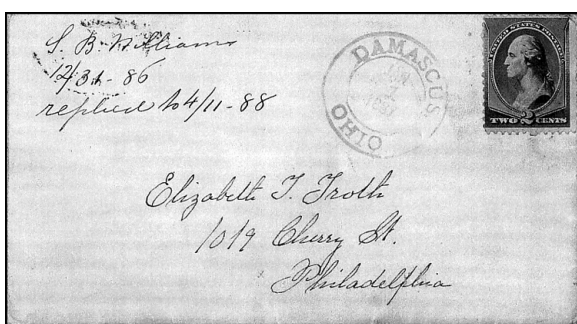 S. B. Williams
12/31-86
replied to 4/11-88
DAMASCUS
JAN
OHIO
UNITED STATES POSTAGE
TWO 2 CENTS
Elizabeth T. Troth
1019 Cherry St.
Philadelphia